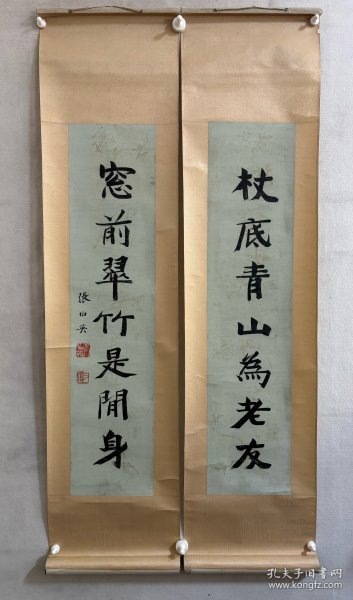 杖底青山為老友
窓前翠竹是閒身
張伯英
孔夫子旧书网
www.kongfz.com